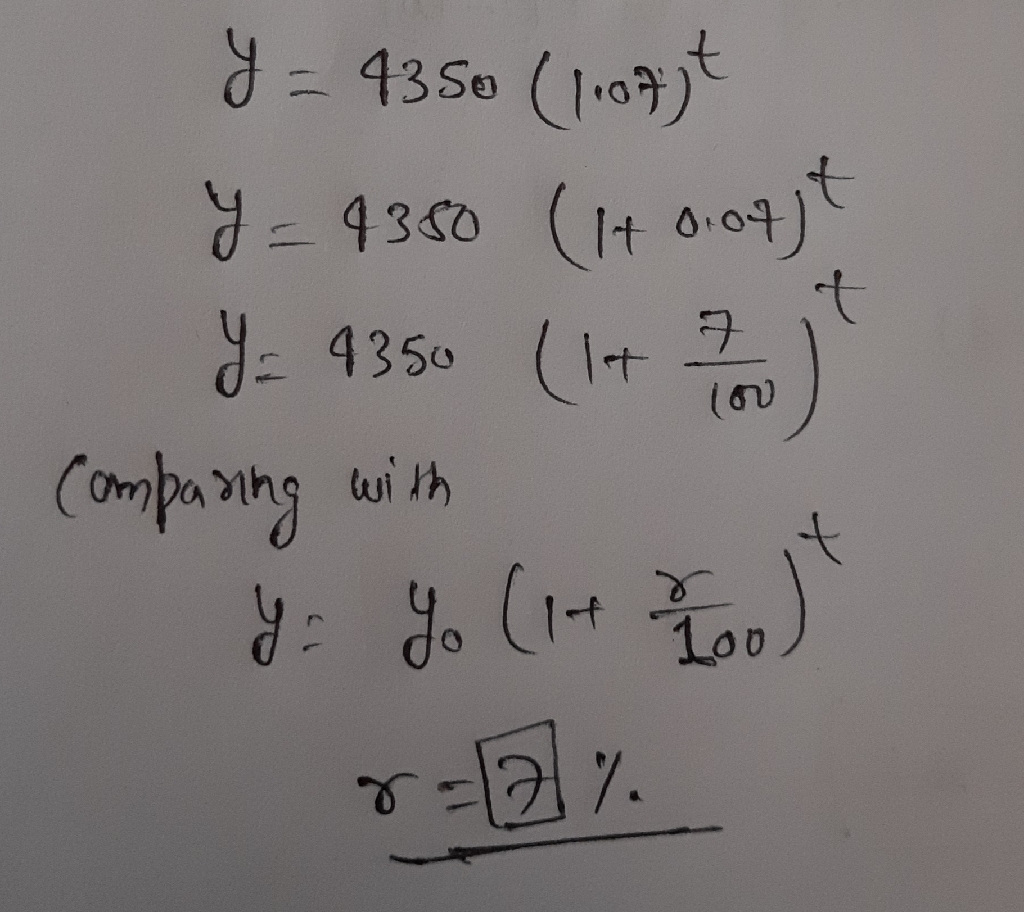 y = 4350 (1.07)^t
y = 4350 (1+ 0.07)^t
y = 4350 (1+ 7/100)^t
Comparing with
y = y₀ (1+ r/100)^t
r = 7 %.